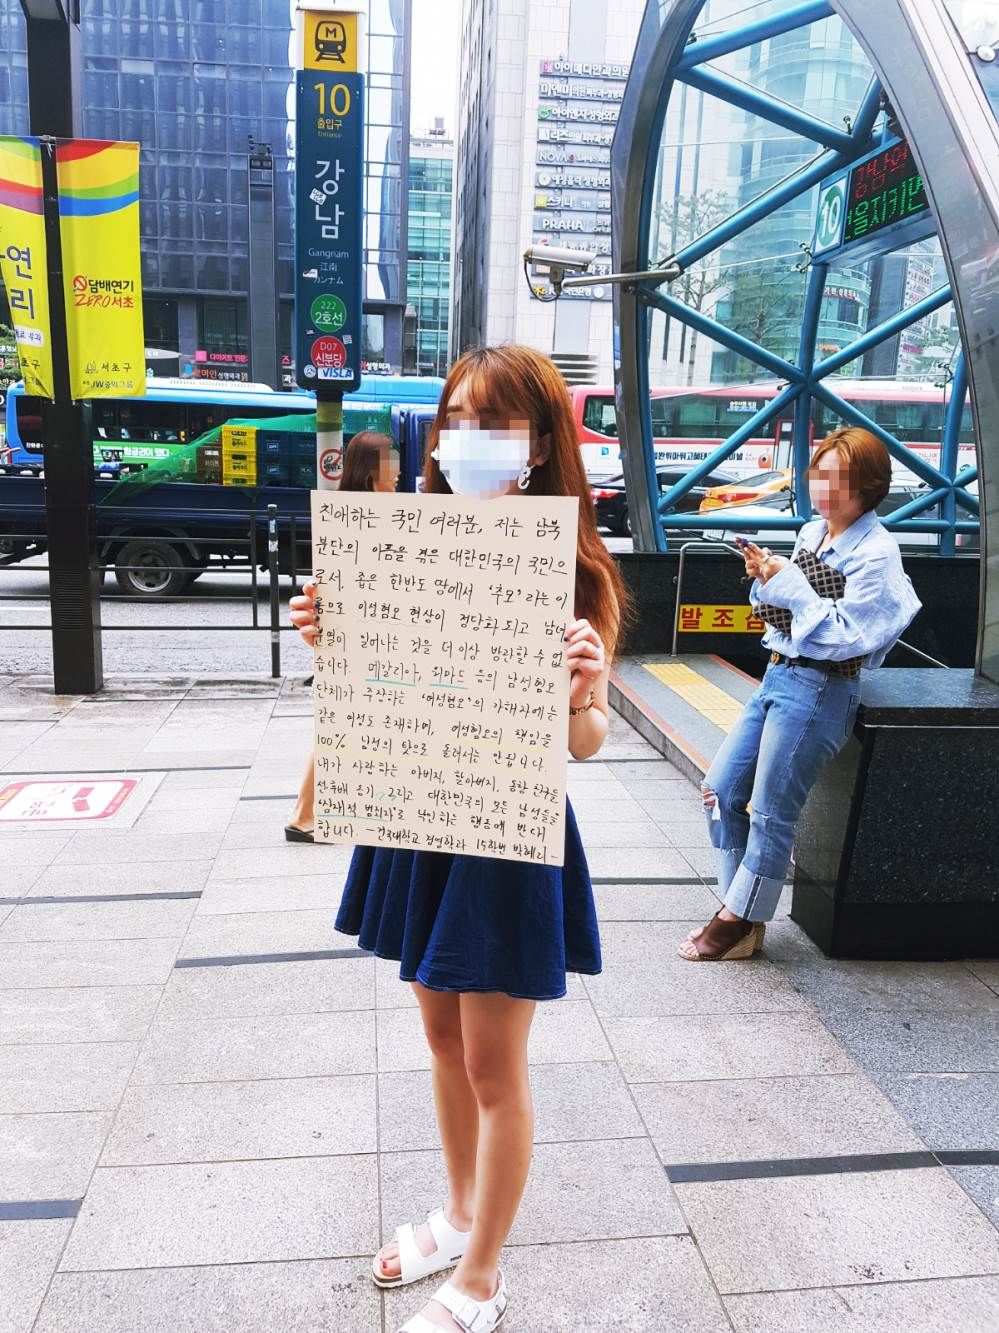 M
10
출입구
Entrance
강남
Gangnam
江南
カンナム
222
2호선
D07
신분당
VISLA
담배연기
ZERO 서초
서초구
JW중외그룹
연
리
서초구
아이메디안과의원
PRAHA
NOVA
스키니
10
강남역
을지키면
발조심
친애하는 국민 여러분, 저는 남북
분단의 아픔을 겪은 대한민국의 국민으
로서, 좁은 한반도 땅에서 '추모'라는 이
름으로 이성혐오 현상이 정당화되고 남녀
분열이 일어나는 것을 더 이상 방관할 수 없
습니다. 메갈리아, 워마드 등의 남성혐오
단체가 주장하는 '여성혐오'의 가해자에는
같은 여성도 존재하며, 여성혐오의 책임을
100% 남성의 탓으로 돌려서는 안됩니다.
내가 사랑하는 아버지, 할아버지, 동창 친구들,
선후배 동기, 그리고 대한민국의 모든 남성들을
'잠재적 범죄자'로 낙인하는 행동에 반대
합니다. -건국대학교 경영학과 15학번 박혜리-